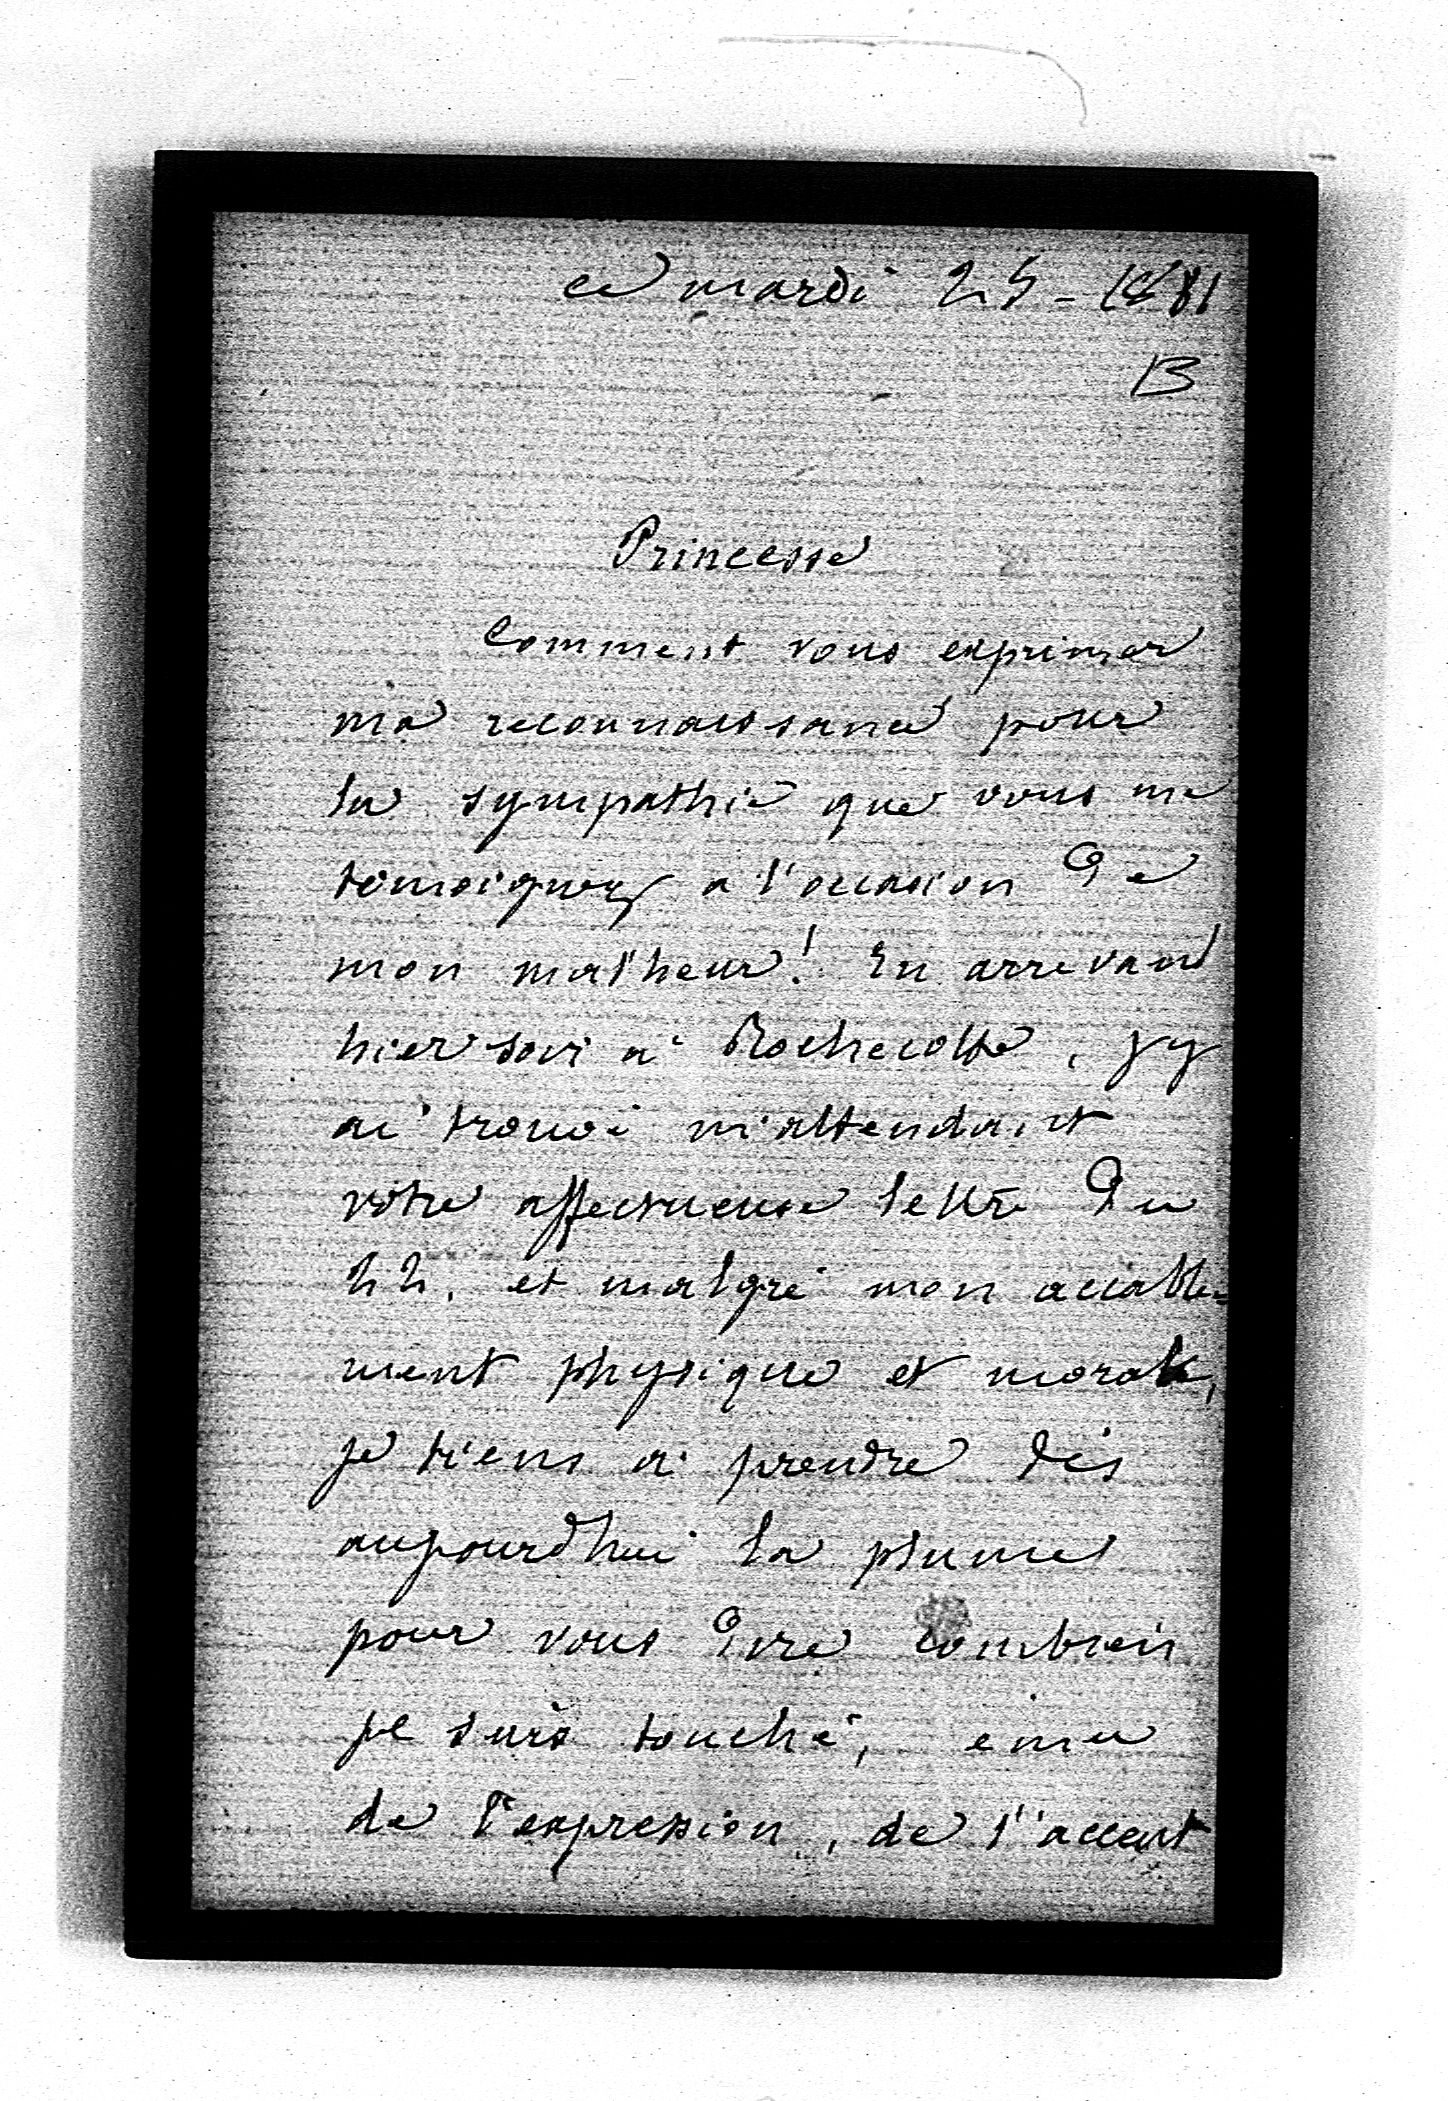 ce mardi 25 - 1881
B
Princesse
Comment vous exprimer
ma reconnaissance pour
la sympathie que vous me
temoignez a l'occasion de
mon malheur! En arrivant
hier soir a Rochecotte, j'y
ai trouvé m'attendant
votre affectueuse lettre du
22. et malgré mon accable-
ment physique et morale,
je tiens a prendre dès
aujourdhui la plume
pour vous dire combien
je suis touché, emu
de l'expression, de l'accent